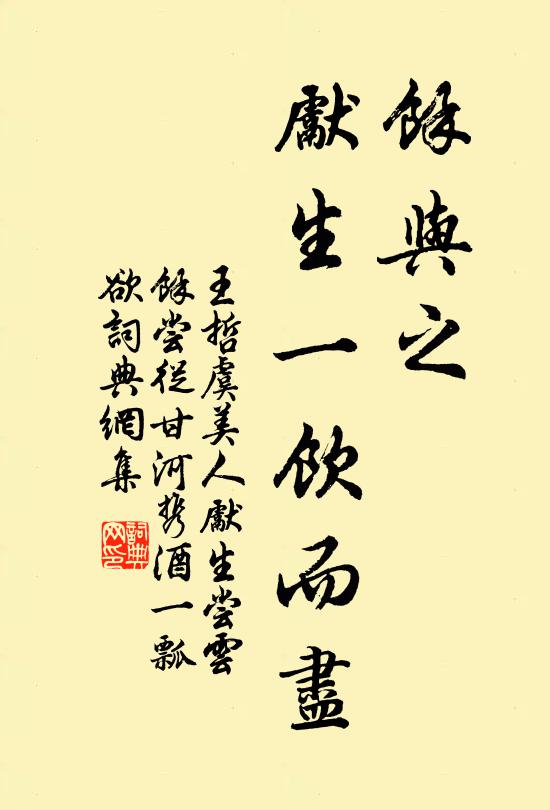 餘與之
獻生一飲而盡
王哲虞美人獻生嘗雲
餘嘗從甘河攜酒一瓢
欲詞典網集
詞典
网印